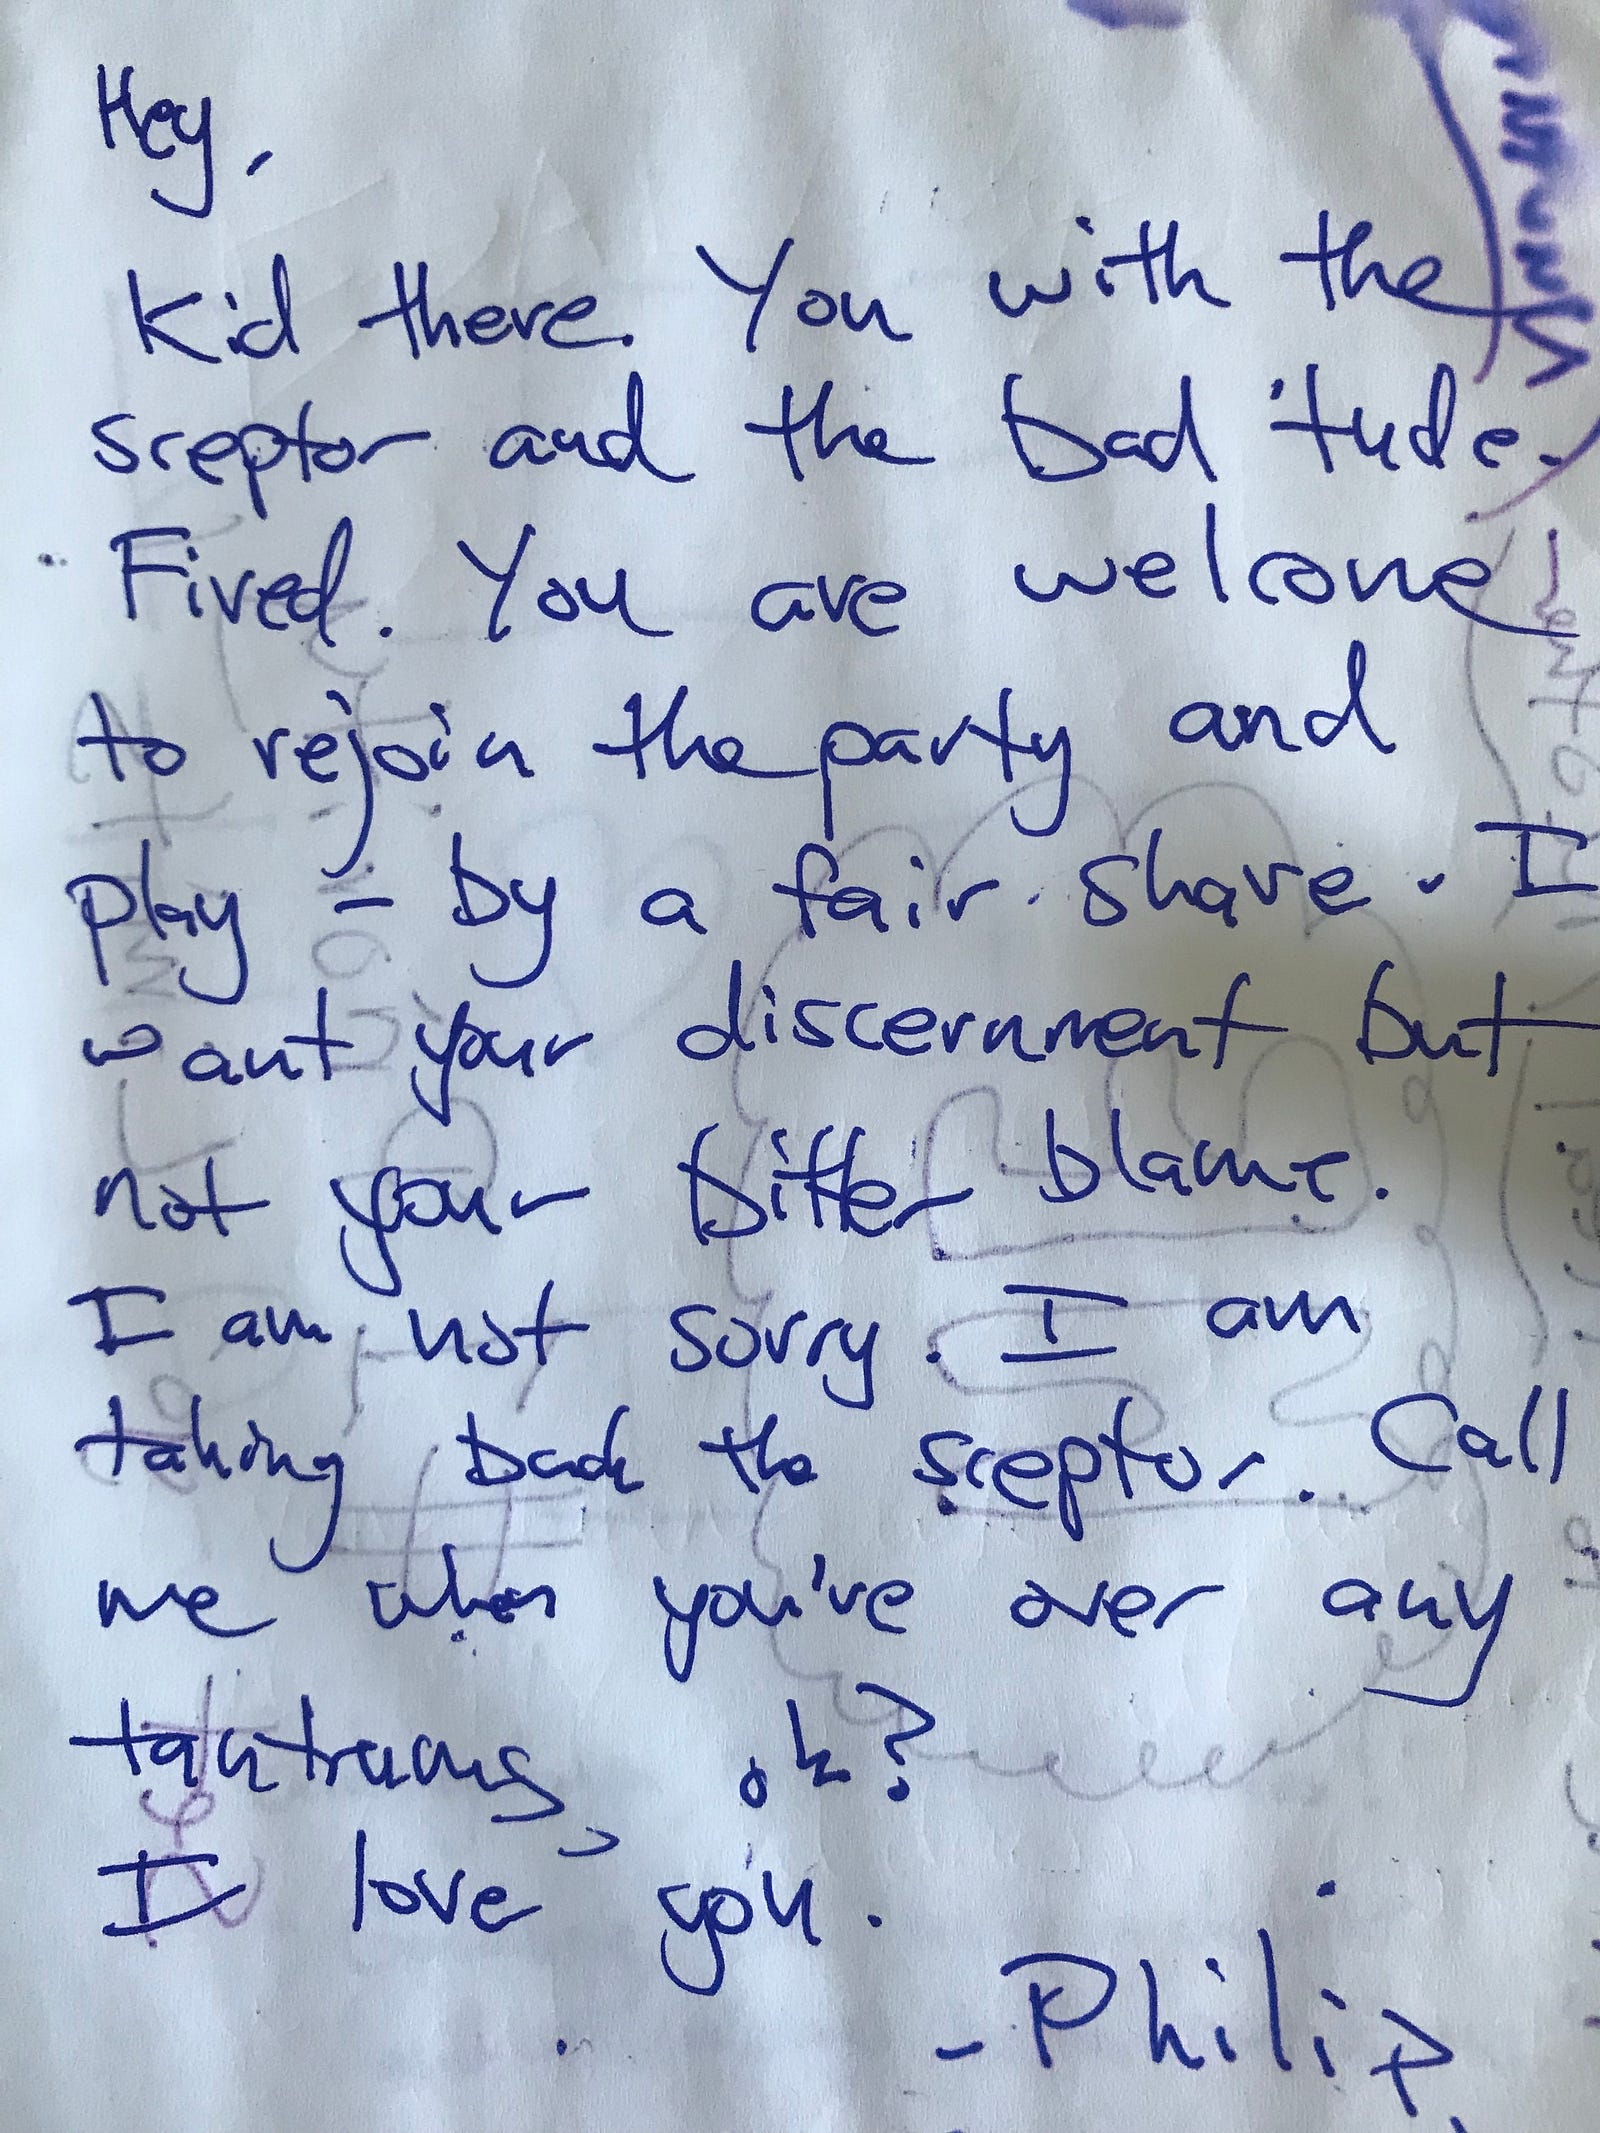 Hey,
Kid there. You with the
sceptor and the bad 'tude.
Fired. You are welcome
to rejoin the party and
play - by a fair share. I
want your discernment but
not your bitter blame.
I am not sorry. I am
taking back the sceptor. Call
me when you've over any
tantrums, ok?
I love you.
- Philip